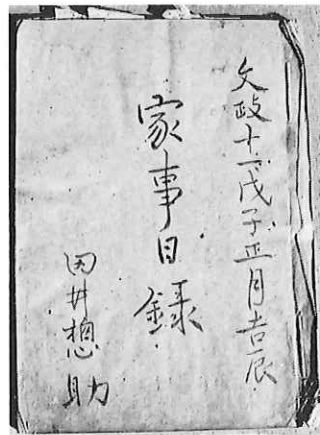 文政十一戊子正月吉辰
家事日録
田井惣助